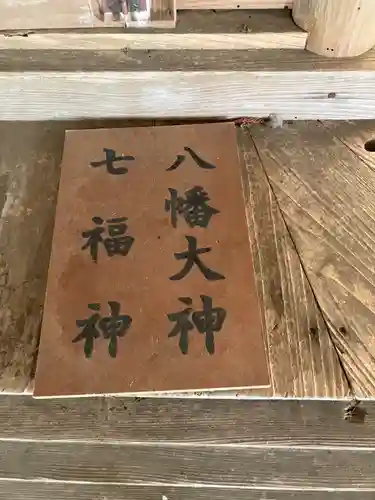 八幡大神
七福神